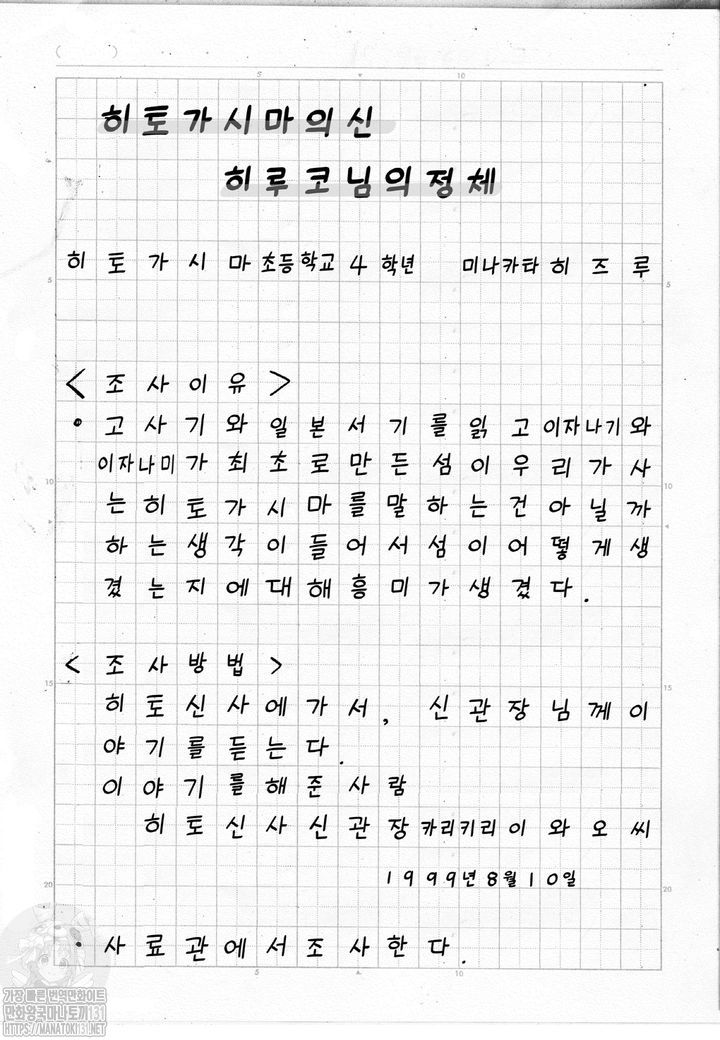 ( )
5 10
히토가시마의신
히루코님의정체
히토가시마초등학교4학년 미나카타히즈루
5 5
<조사이유>
• 고사기와일본서기를읽고이자나기와
이자나미가최초로만든섬이우리가사
10 10
는히토가시마를말하는건아닐까
하는생각이들어서섬이어떻게생
겼는지에대해흥미가생겼다.
<조사방법>
15 15
히토신사에가서, 신관장님께이
야기를듣는다.
이야기를해준사람
히토신사신관장카리키리이와오씨
1999년8월10일
20 20
• 사료관에서조사한다.
5 10
가장 빠른 번역만화사이트
만화왕국마나토끼131
HTTPS://MANATOKI131.NET